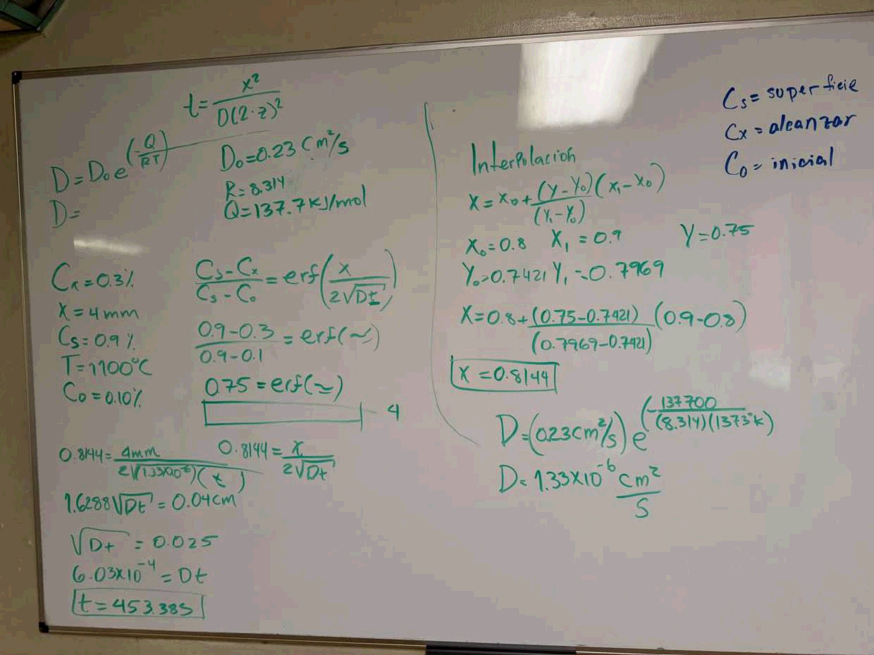 t = x² / D(2·z)²
D = D₀e^(-Q/RT)
D₀ = 0.23 cm²/s
D =
R = 8.314
Q = 137.7 kJ/mol
Cₓ = 0.3%
x = 4 mm
Cs = 0.9%
T = 1100°C
C₀ = 0.10%
Cs - Cx / Cs - C₀ = erf(x / 2√Dt)
0.9 - 0.3 / 0.9 - 0.1 = erf(~)
0.75 = erf(~)
4
0.8144 = 4mm / 2√(1.33x10⁻⁶)(t)
0.8144 = x / 2√Dt
1.6288√Dt = 0.04cm
√Dt = 0.025
6.03x10⁻⁴ = Dt
t = 453.38s
Interpolación
X = X₀ + (Y - Y₀)(X₁ - X₀) / (Y₁ - Y₀)
X₀ = 0.8 X₁ = 0.9 Y = 0.75
Y₀ = 0.7421 Y₁ = 0.7969
X = 0.8 + (0.75 - 0.7421) / (0.7969 - 0.7421) (0.9 - 0.8)
X = 0.8144
D = (0.23 cm²/s) e^(-137700 / (8.314)(1373°k))
D = 1.33x10⁻⁶ cm²/s
Cs = superficie
Cx = alcanzar
C₀ = inicial